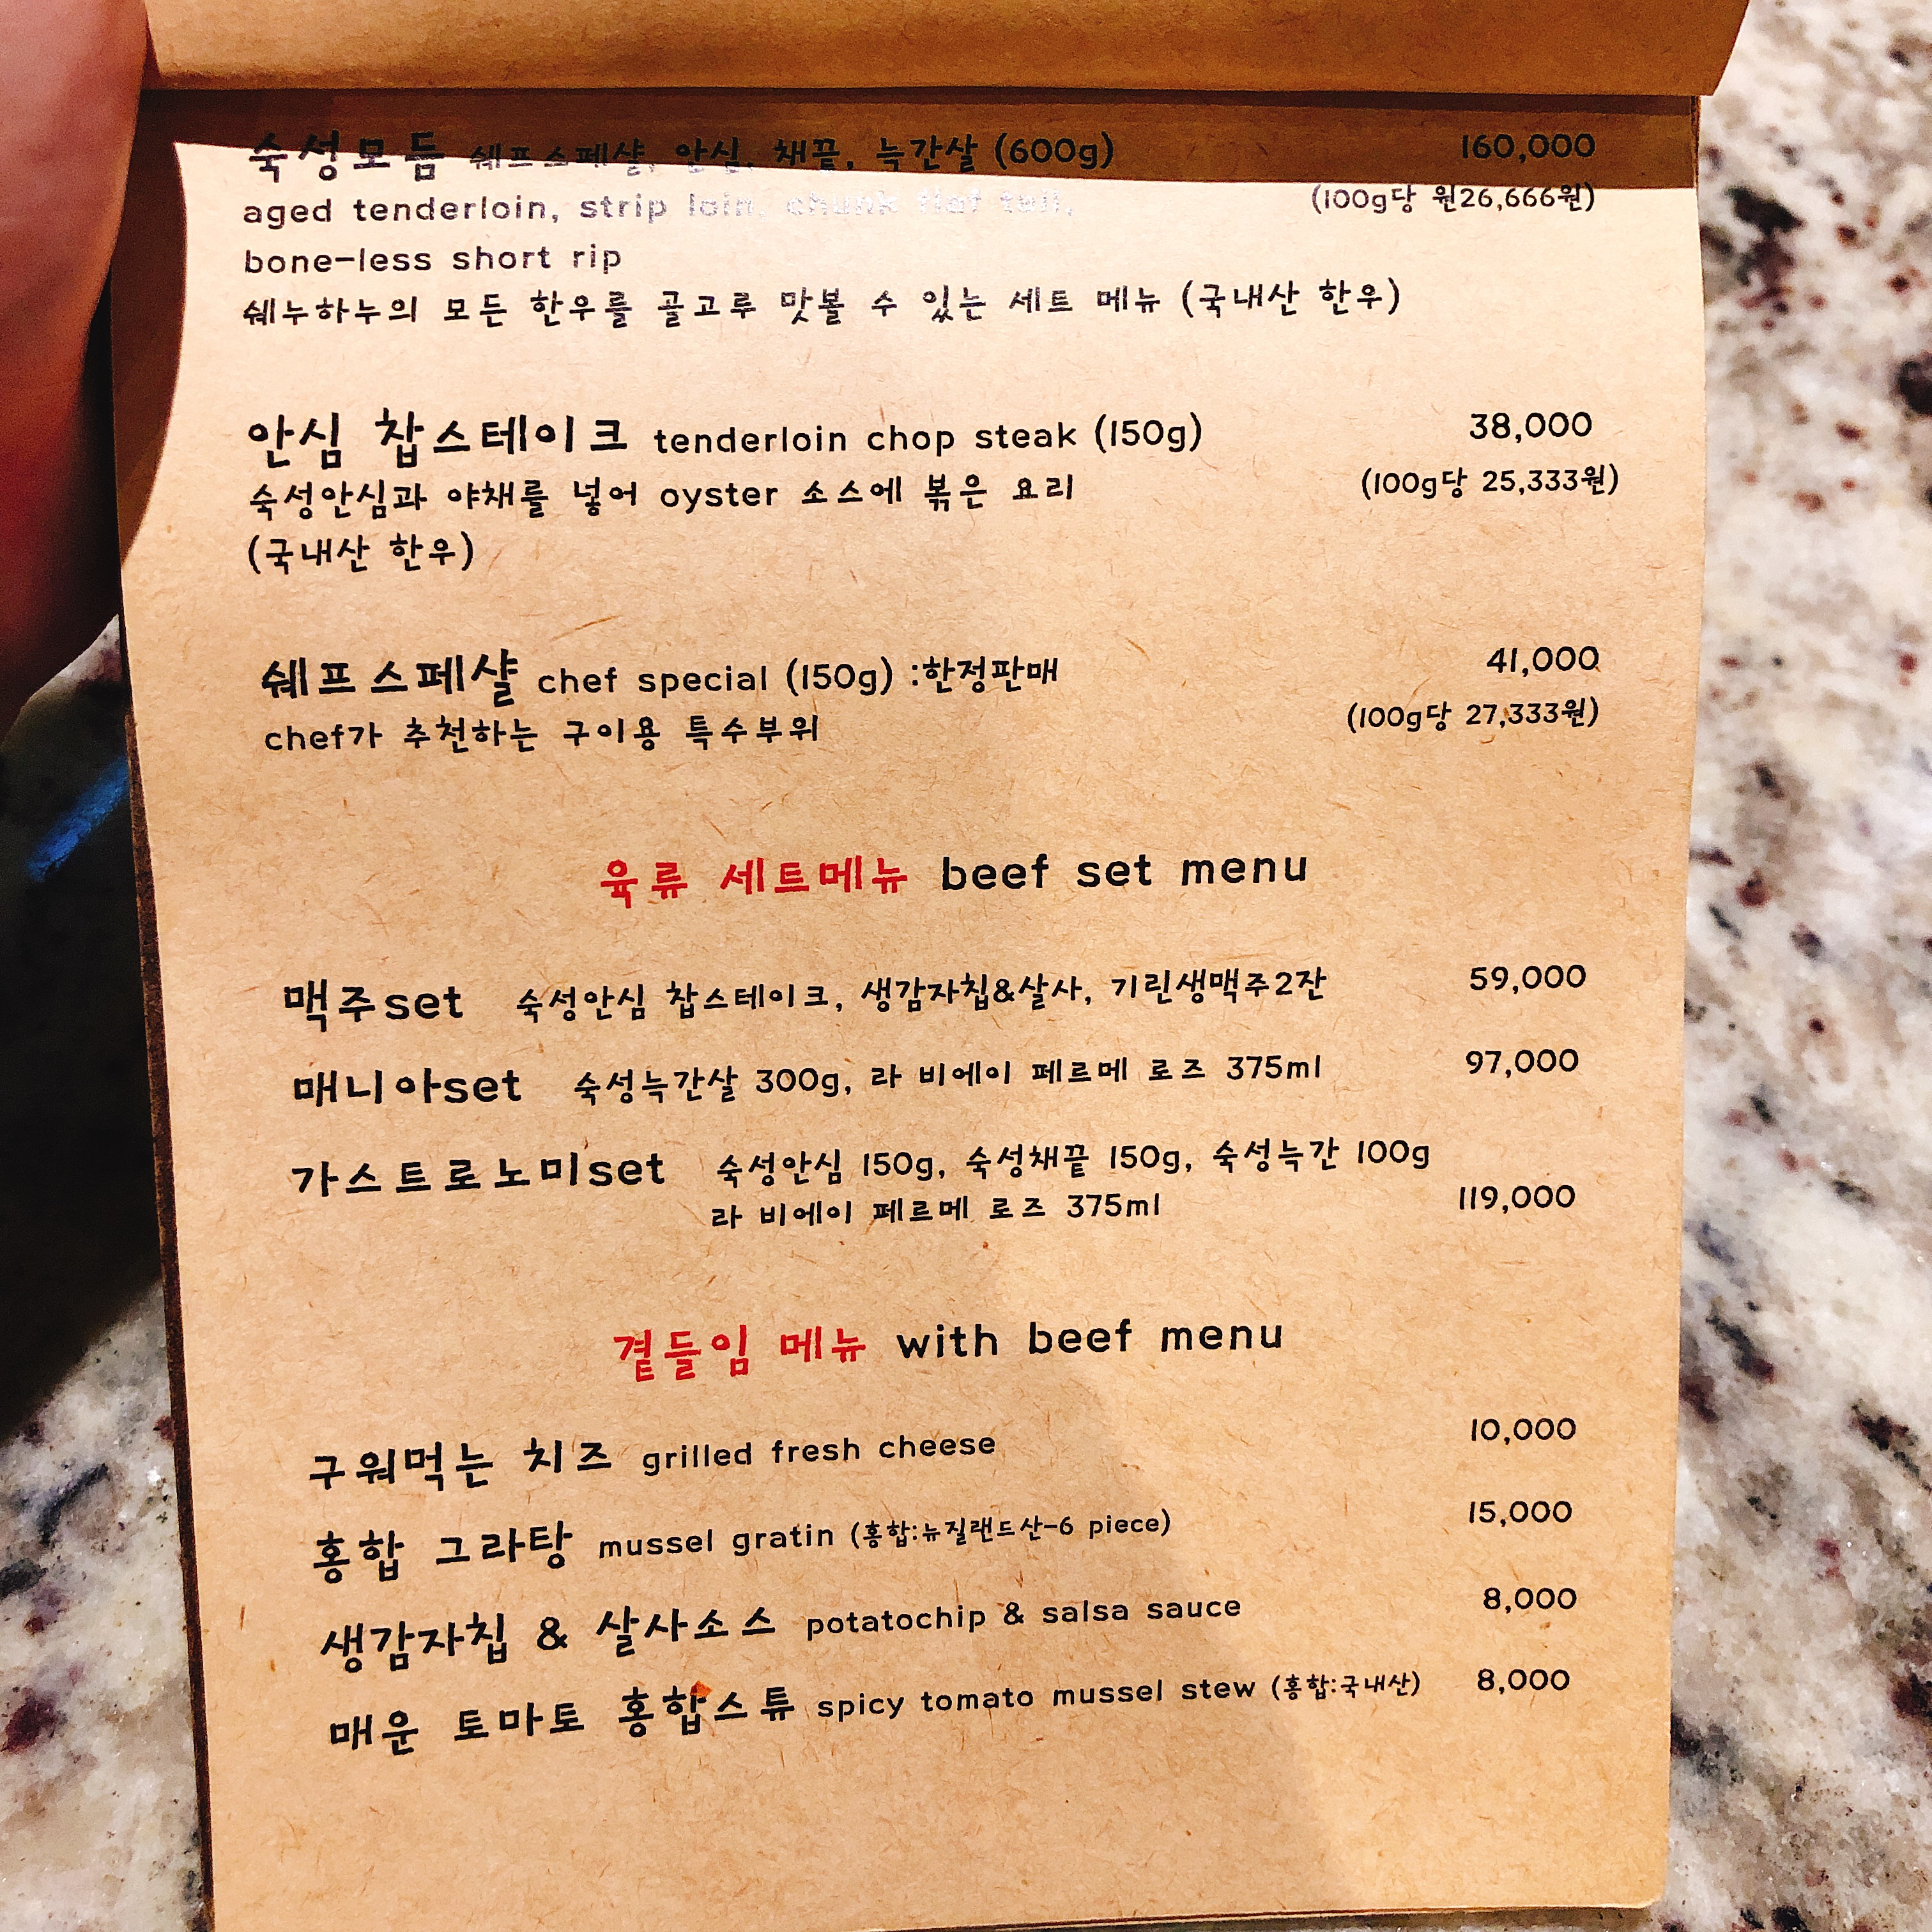 숙성모듬 쉐프스페샬, 안심, 채끝, 늑간살 (600g) 160,000
aged tenderloin, strip loin, chunk flaf tail, (100g당 원26,666원)
bone-less short rip
쉐누하누의 모든 한우를 골고루 맛볼 수 있는 세트 메뉴 (국내산 한우)
안심 찹스테이크 tenderloin chop steak (150g) 38,000
숙성안심과 야채를 넣어 oyster 소스에 볶은 요리 (100g당 25,333원)
(국내산 한우)
쉐프 스페샬 chef special (150g) :한정판매 41,000
chef가 추천하는 구이용 특수부위 (100g당 27,333원)
육류 세트메뉴 beef set menu
맥주set 숙성안심 찹스테이크, 생감자칩&살사, 기린생맥주2잔 59,000
매니아set 숙성늑간살 300g, 라 비에이 페르메 로즈 375ml 97,000
가스트로노미set 숙성안심 150g, 숙성채끝 150g, 숙성늑간 100g
라 비에이 페르메 로즈 375ml 119,000
곁들임 메뉴 with beef menu
구워먹는 치즈 grilled fresh cheese 10,000
홍합 그라탕 mussel gratin (홍합:뉴질랜드산-6 piece) 15,000
생감자칩 & 살사소스 potatochip & salsa sauce 8,000
매운 토마토 홍합스튜 spicy tomato mussel stew (홍합:국내산) 8,000